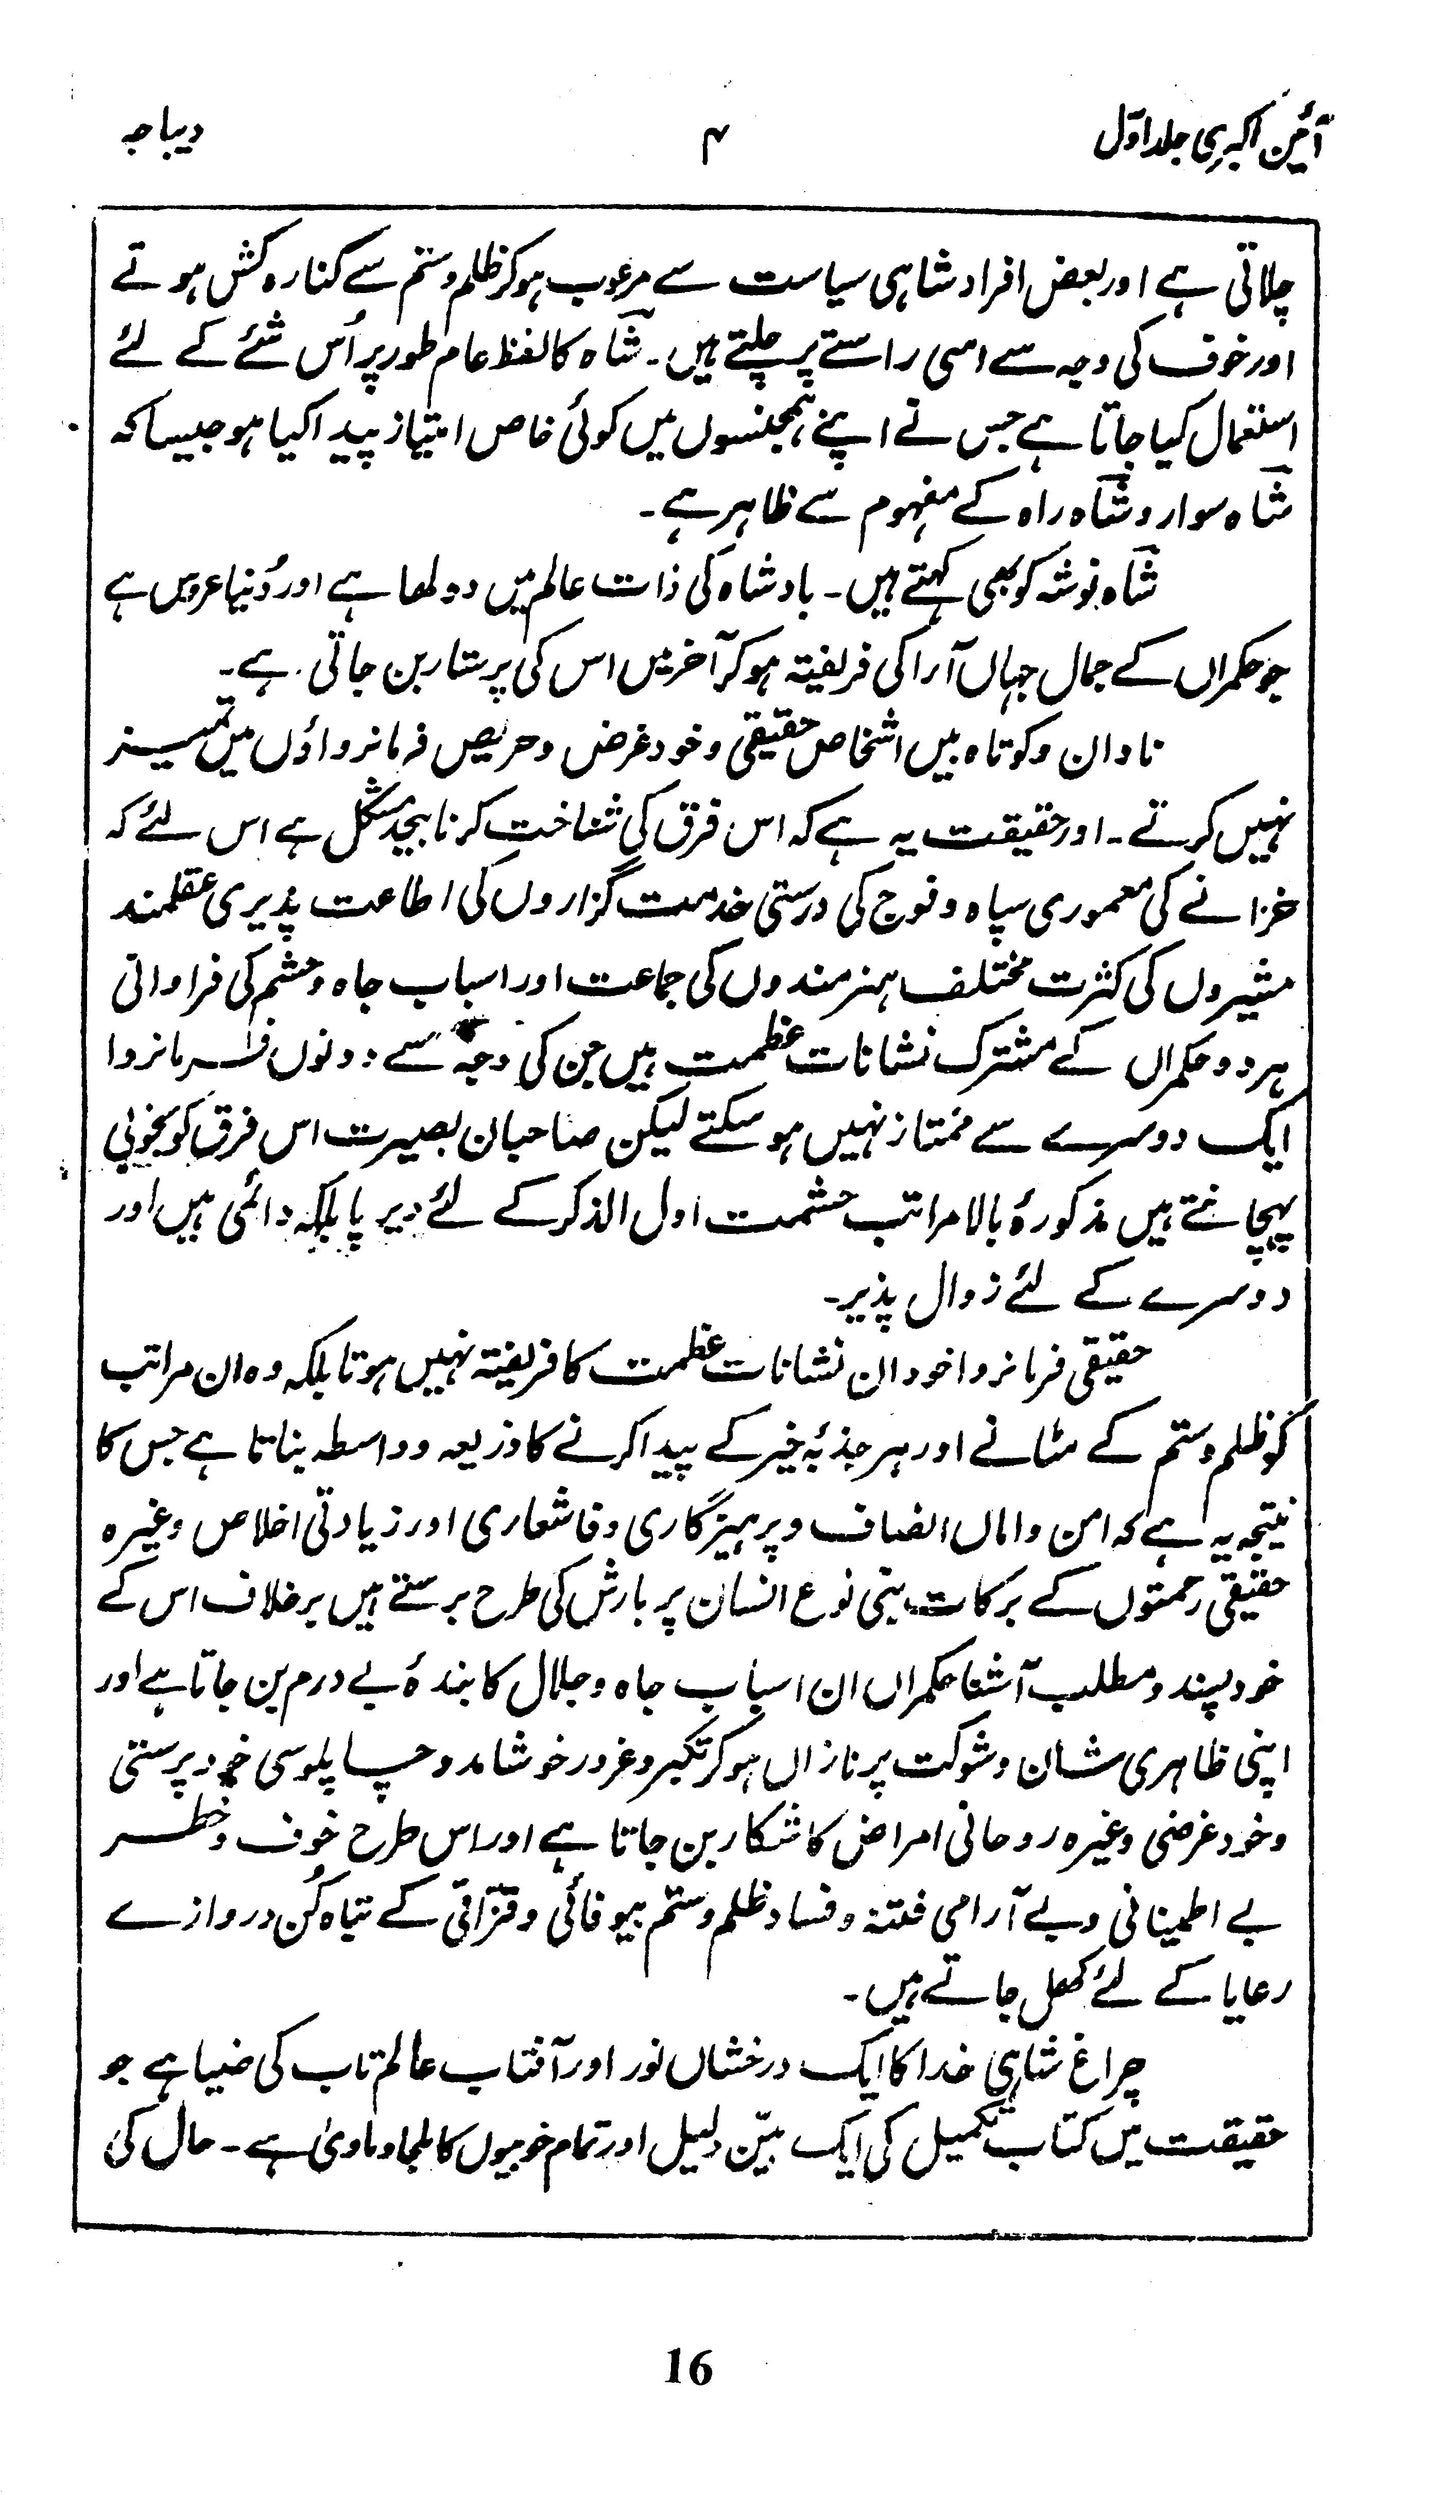 آئین اکبری جلد اوّل
۴
دیباجہ
چلاتی ہے اور بعض افراد شاہی سیاست سے مرعوب ہو کر ظلم و ستم سے کنارہ کش ہوتے
اور خوف کی وجہ سے اسی راستے پر چلتے ہیں۔ شاہ کا لفظ عام طور پر اُس شئے کے لئے
استعمال کیا جاتا ہے جس نے اپنے ہمجنسوں میں کوئی خاص امتیاز پیدا کیا ہو جیسا کہ
شاہ سوار و شاہ راہ کے مفہوم سے ظاہر ہے۔
شاہ نوشہ کو بھی کہتے ہیں۔ بادشاہ کی ذات عالم میں دولھا ہے اور دُنیا عروس ہے
جو حکمراں کے جمال جہاں آرا کی فریفتہ ہو کر آخر میں اس کی پرستار بن جاتی ہے۔
نادان و کوتاہ بیں اشخاص حقیقی و خود غرض و حریص فرمانرواؤں میں تمیز
نہیں کرتے۔ اور حقیقت یہ ہے کہ اس فرق کی شناخت کرنا بیحد مشکل ہے اس لئے کہ
خزانے کی معموری سپاہ و فوج کی درستی خدمت گزاروں کی اطاعت پذیری عقلمند
مشیروں کی کثرت مختلف ہنرمندوں کی جماعت اور اسباب جاہ و حشم کی فراوانی
ہر دو حکمراں کے مشترک نشانات عظمت ہیں جن کی وجہ سے دونوں فرمانروا
ایک دوسرے سے ممتاز نہیں ہو سکتے لیکن صاحبان بصیرت اس فرق کو بخوبی
پہچانتے ہیں مذکورۂ بالا مراتب حشمت اول الذکر کے لئے دیر پا بلکہ دائمی ہیں اور
دوسرے کے لئے زوال پذیر۔
حقیقی فرمانروا خود ان نشانات عظمت کا فریفتہ نہیں ہوتا بلکہ وہ ان مراتب
کو ظلم و ستم کے مٹانے اور ہر جذبۂ خیر کے پیدا کرنے کا ذریعہ و واسطہ بناتا ہے جس کا
نتیجہ یہ ہے کہ امن و اماں انصاف و پرہیزگاری وفا شعاری اور زیادتی اخلاص وغیرہ
حقیقی رحمتوں کے برکات بنی نوع انسان پر بارش کی طرح برستے ہیں برخلاف اس کے
خود پسند و مطلب آشنا حکمراں ان اسباب جاہ و جلال کا بندۂ بے درم بن جاتا ہے اور
اپنی ظاہری شان و شوکت پر نازاں ہو کر تکبر و غرور خوشامد و چاپلوسی خود پرستی
و خود غرضی وغیرہ روحانی امراض کا شکار بن جاتا ہے اور اس طرح خوف و خطر
بے اطمینانی و بے آرامی فتنہ و فساد ظلم و ستم بیوفائی و قزّاقی کے تباہ کُن دروازے
رعایا کے لئے کھل جاتے ہیں۔
چراغ شاہی خدا کا ایک درخشاں نور اور آفتاب عالم تاب کی ضیا ہے جو
حقیقت میں کتاب تکمیل کی ایک بیّن دلیل اور تمام خوبیوں کا ملجا و ماویٰ ہے۔ حال کی
16